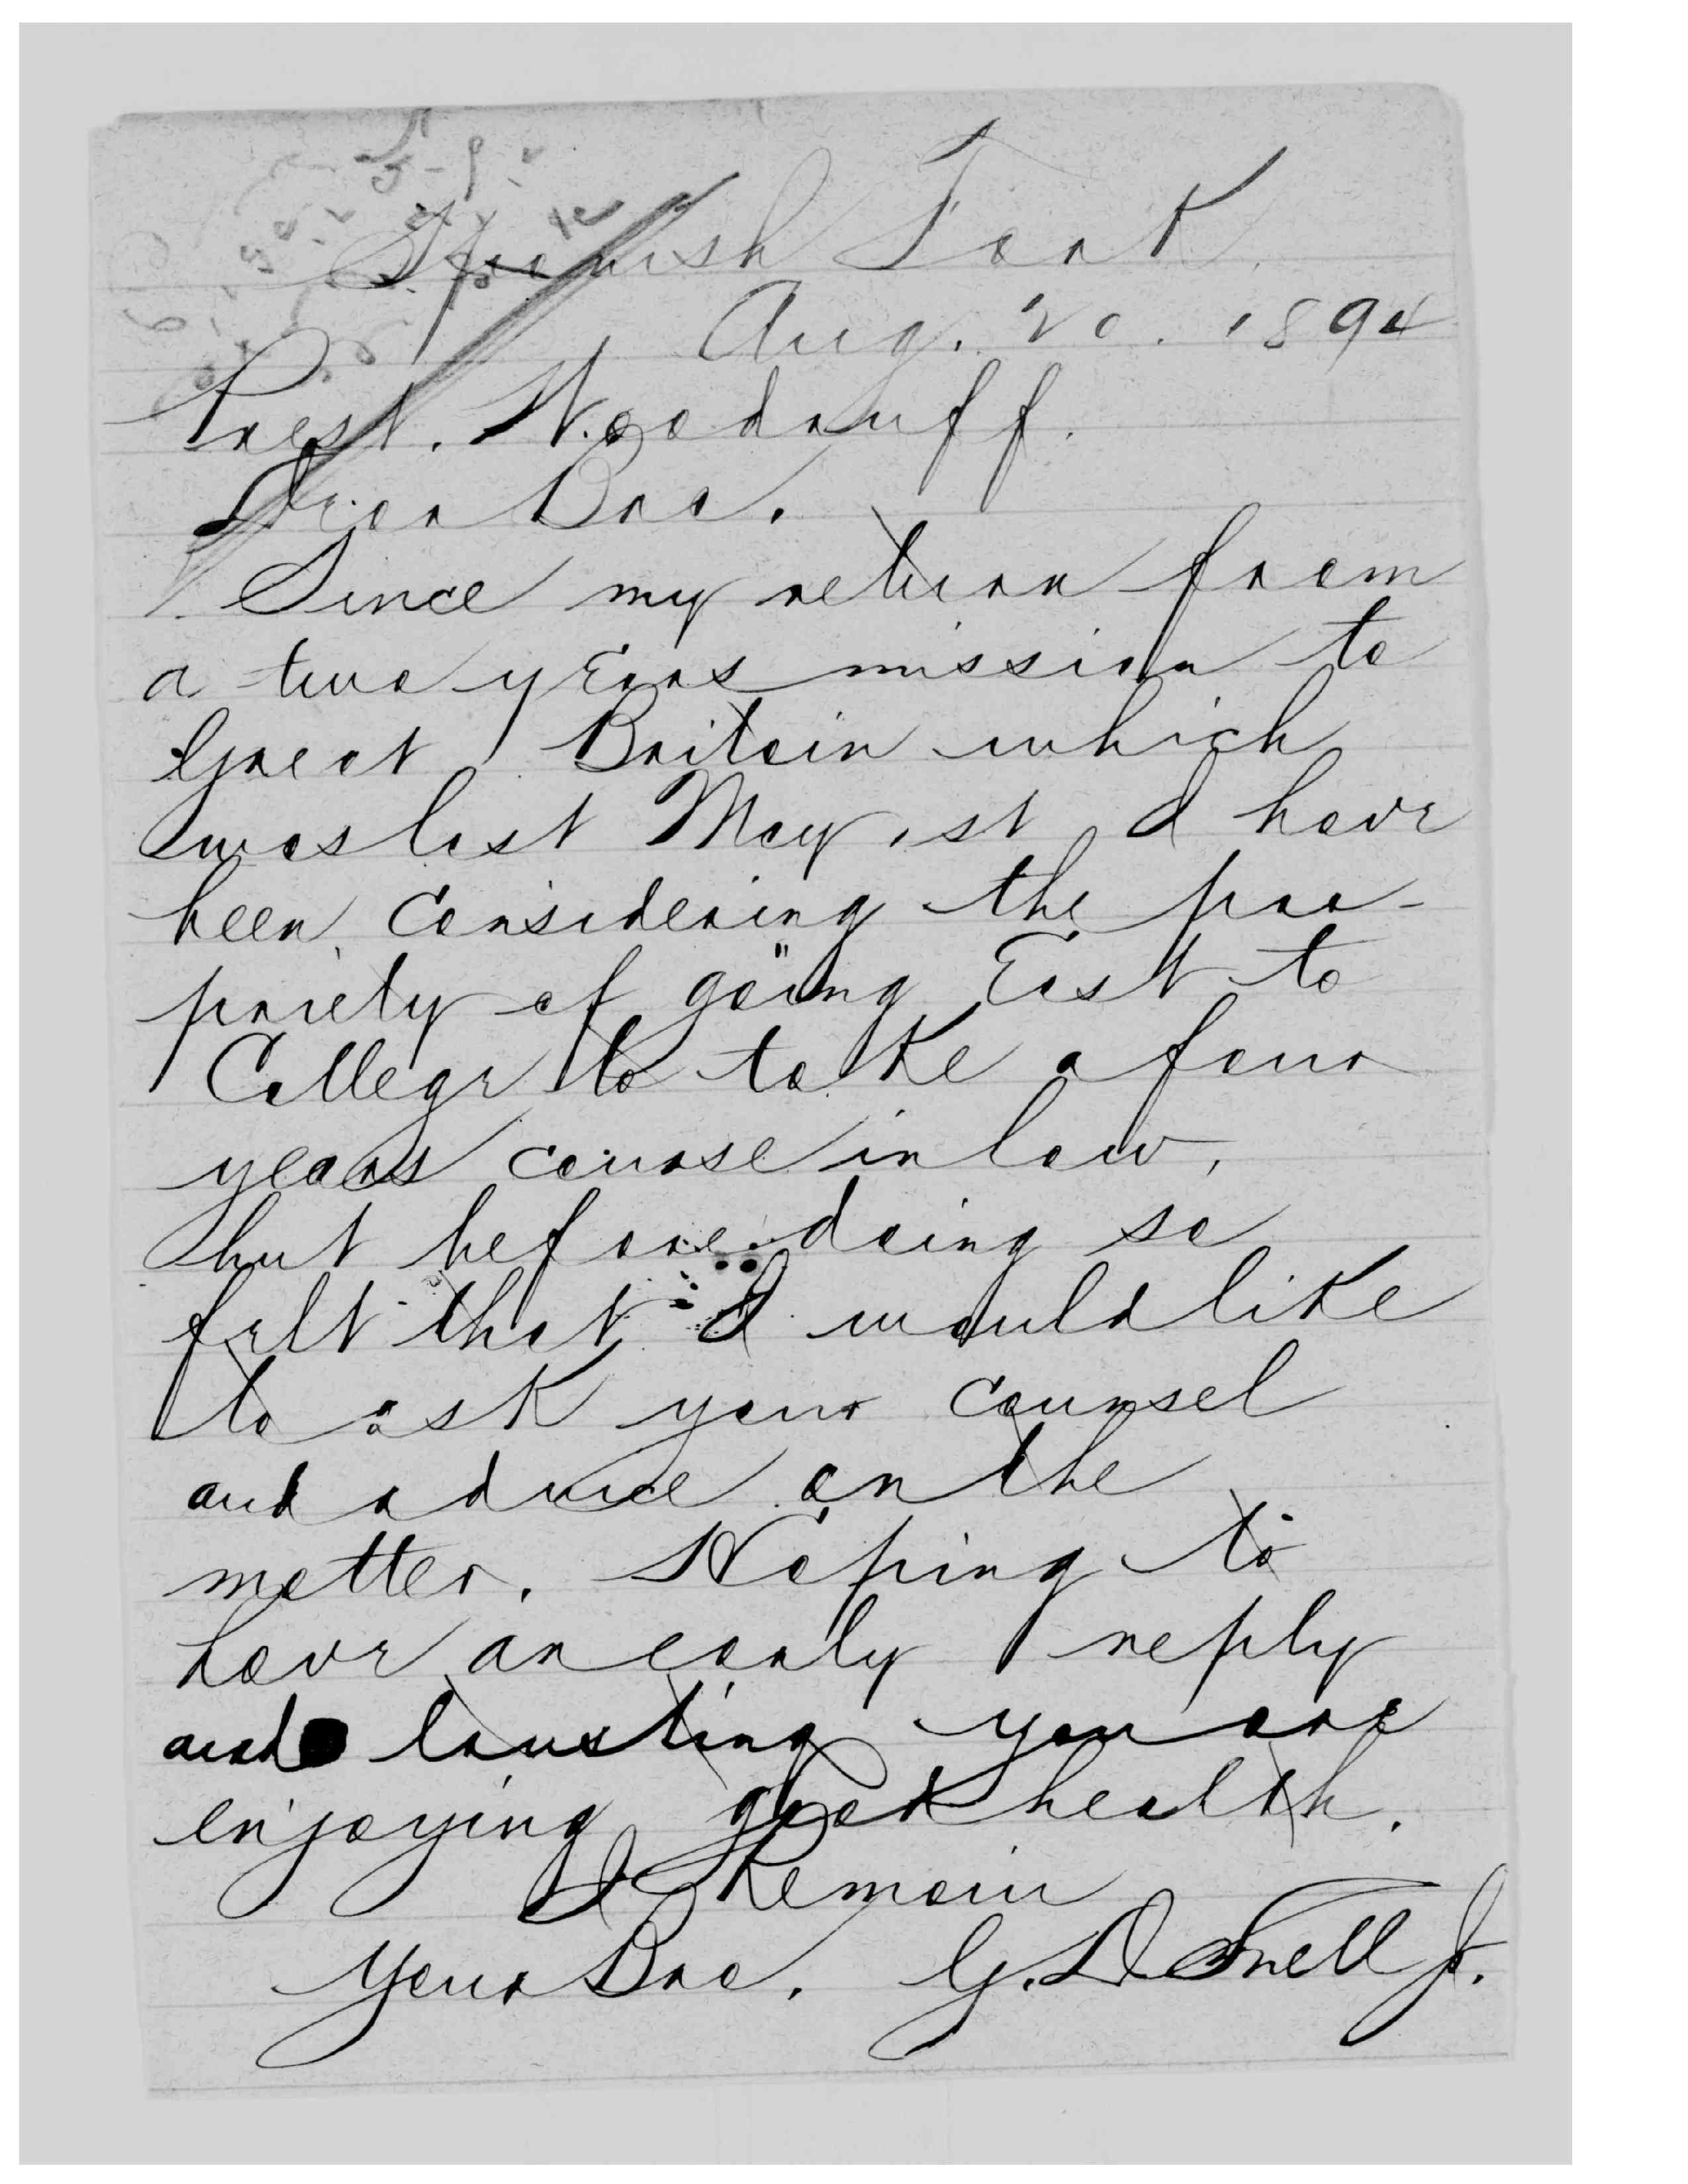 Spanish Fork.
Aug. 20. 1894
Prest. Woodruff.
Dear Bro.
Since my return from
a two years mission to
Great Britain which
was last May 1st I have
been considering the pro-
priety of going East to
College to take a four
years course in law,
but before doing so
felt that I would like
to ask your counsel
and advice on the
matter. Hoping to
have an early reply
and trusting you are
enjoying good health.
I Remain
Your Bro. G. D. Snell Jr.